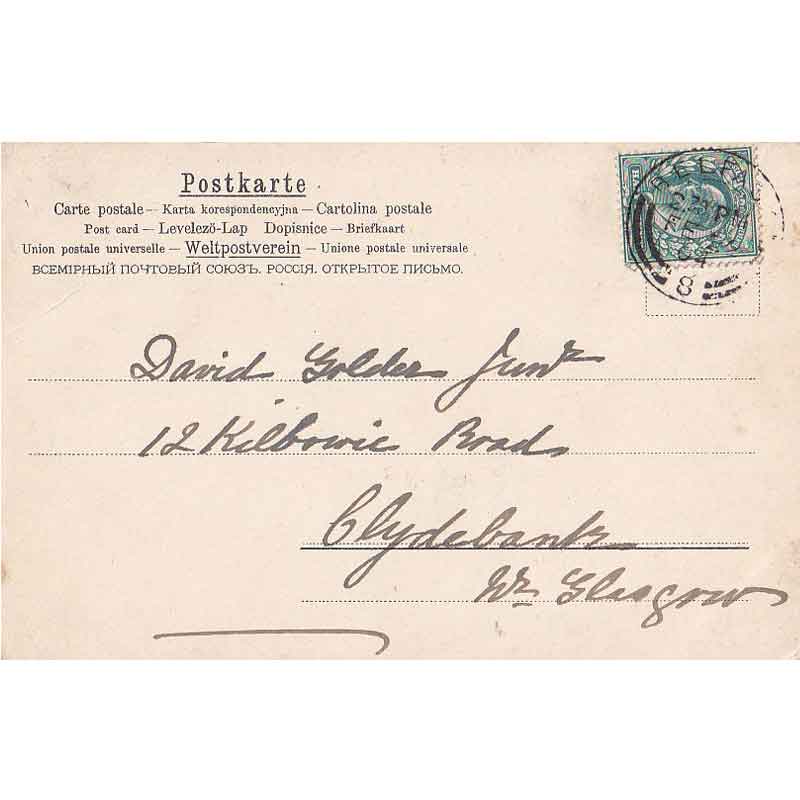 Postkarte
Carte postale — Karta korespondencyjna — Cartolina postale
Post card — Levelező-Lap Dopisnice — Briefkaart
Union postale universelle — Weltpostverein — Unione postale universale
ВСЕМІРНЫЙ ПОЧТОВЫЙ СОЮЗЪ. РОССІЯ. ОТКРЫТОЕ ПИСЬМО.
David Golder Junr
12 Kilbowie Road
Clydebank
Nr. Glasgow
8